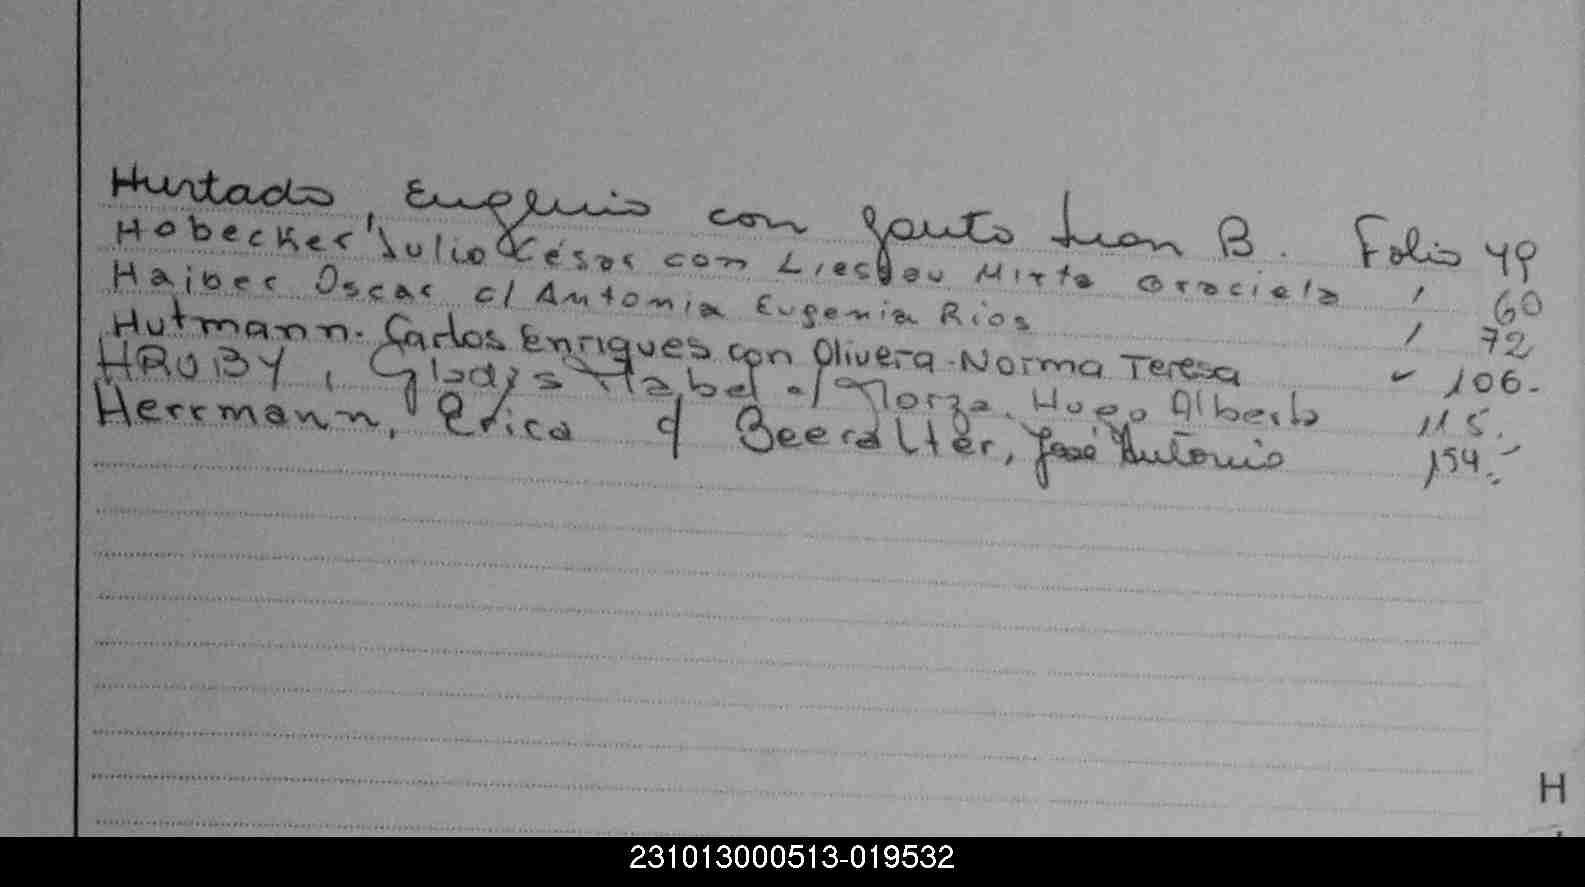 Hurtado, Eugenio con Gauto Juan B. Folio 49
Hobecker Julio César con Mirta Graciela " 60
Haiber Oscar c/ Antonia Eugenia Rios " 72
Hutmann. Carlos Enriques con Olivera - Norma Teresa " 106.
HRUBY, Gladys Mabel c/ Hugo Alberto 115.
Herrmann, Erica c/ Beeralter, José Antonio 154.-
H
231013000513-019532